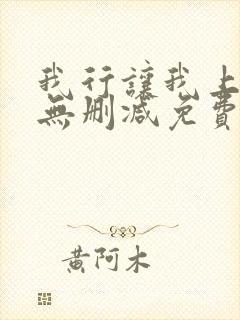 我行讓我上
無删減免費
黄阿木